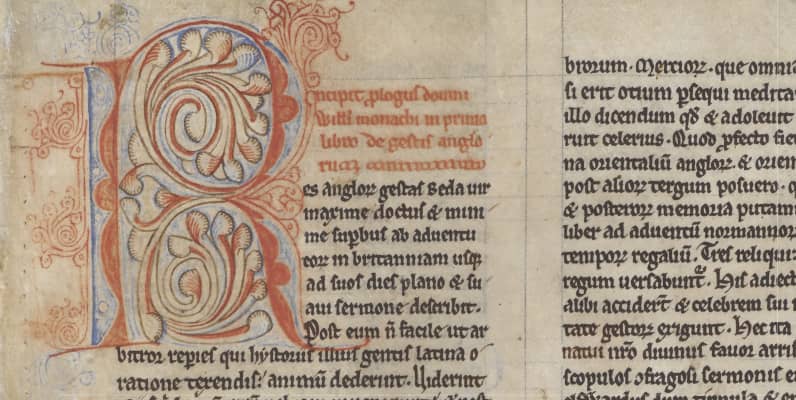 Incipit plogus domni
Willi monachi in primo
libro de gestis anglo
rum
Res angloꝝ gestas Beda uir
maxime doctus & mini
me supbus ab aduentu
eoꝝ in britanniam usq
ad suos dies plano & su
aui sermone describit.
Post eum ñ facile ut ar
bitror repies qui hystoriis illius gentis latina o
ratione texendis animũ dederint. Uiderint
broꝝum. Merciorꝝ. que omnia
si erit otium psequi medita
illo dicendum qd & adoleuit
runt celerius. Quod pfecto fie
na orientaliũ angloꝝ. & orien
post alioꝝ tergum posuero. q
& posteroꝝ memoria putam
liber ad aduentũ normannoꝝ
tempore regaliũ. Tres reliqui
regum uersabunt. His adiect
alibi acciderit & celebrem sui
tate gestoꝝ exigunt. Hec ita
natui nr̃o diuinus fauor arris
scopulos cfragosi sermonis e